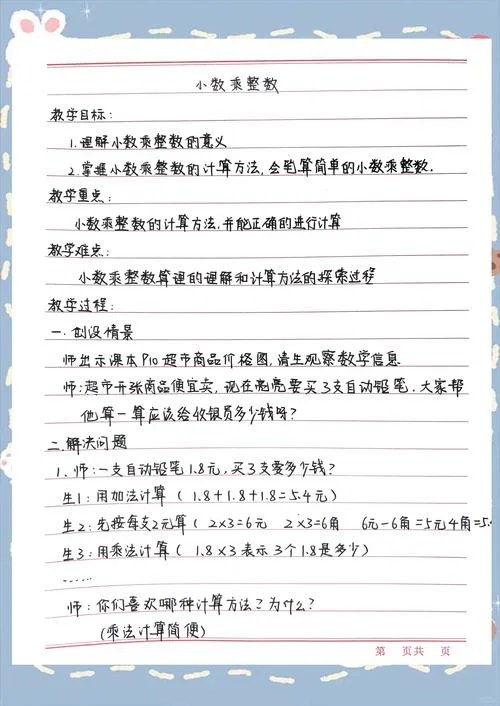 小数乘整数
教学目标:
1.理解小数乘整数的意义
2.掌握小数乘整数的计算方法,会笔算简单的小数乘整数.
教学重点:
小数乘整数的计算方法,并能正确的进行计算
教学难点:
小数乘整数算理的理解和计算方法的探索过程
教学过程:
一.创设情景
师出示课本P10超市商品价格图,请生观察数学信息
师:超市开张商品便宜卖,现在亮亮要买3支自动铅笔.大家帮
他算一算应该给收银员多少钱呀?
二.解决问题
1、师:一支自动铅笔1.8元,买3支要多少钱?
生1:用加法计算(1.8+1.8+1.8=5.4元)
生2:先按每支2元算(2×3=6元 2×3=6角 6元-6角=5元4角=5.
生3:用乘法计算(1.8×3表示3个1.8是多少)
......
师:你们喜欢哪种计算方法?为什么?
(乘法计算简便)
第 页共 页